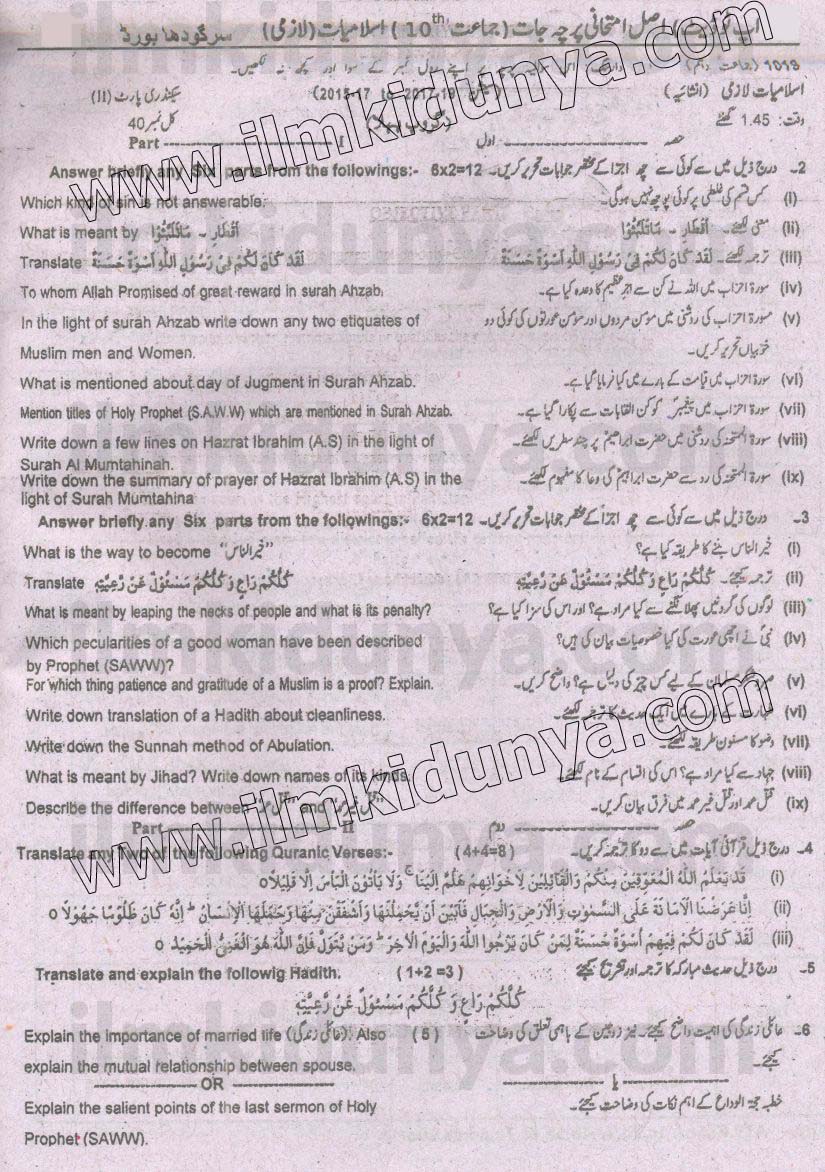 اصل امتحانی پرچہ جات (جماعت 10th) اسلامیات (لازمی) سرگودھا بورڈ
1018 (جماعت دہم) اپنے نمبر کے سوا اور کچھ نہ لکھیں۔
اسلامیات لازمی (انشائیہ) (2015-17 to 2017-19) سیکنڈری پارٹ (II)
وقت: 1.45 گھنٹے کل نمبر 40
حصہ اول Part I
2۔ درج ذیل میں سے کوئی سے چھ اجزا کے مختصر جوابات تحریر کریں۔ 6x2=12 Answer briefly any Six parts from the followings:-
(i) کس قسم کی غلطی پر کوئی پوچھ نہیں ہوگی۔ Which kind of sin is not answerable:
(ii) معنی لکھئے۔ اَقْطَار۔ مَاتَلَبَّثُوْا What is meant by اَقْطَار۔ مَاتَلَبَّثُوْا
(iii) ترجمہ لکھئے۔ لَقَدْ كَانَ لَكُمْ فِيْ رَسُوْلِ اللّٰهِ اُسْوَةٌ حَسَنَةٌ Translate لَقَدْ كَانَ لَكُمْ فِيْ رَسُوْلِ اللّٰهِ اُسْوَةٌ حَسَنَةٌ
(iv) سورۃ احزاب میں اللہ نے کن سے اجرِ عظیم کا وعدہ کیا ہے۔ To whom Allah Promised of great reward in surah Ahzab.
(v) سورۃ احزاب کی روشنی میں مومن مردوں اور مومن عورتوں کی کوئی دو In the light of surah Ahzab write down any two etiquates of
خوبیاں تحریر کریں۔ Muslim men and Women.
(vi) سورۃ احزاب میں قیامت کے بارے میں کیا فرمایا گیا ہے۔ What is mentioned about day of Jugment in Surah Ahzab.
(vii) سورۃ احزاب میں پیغمبرؐ کو کن القابات سے پکارا گیا ہے۔ Mention titles of Holy Prophet (S.A.W.W) which are mentioned in Surah Ahzab.
(viii) سورۃ الممتحنہ کی روشنی میں حضرت ابراہیمؑ پر چند سطریں لکھئے۔ Write down a few lines on Hazrat Ibrahim (A.S) in the light of
Surah Al Mumtahinah.
(ix) سورۃ الممتحنہ کی رو سے حضرت ابراہیمؑ کی دعا کا مفہوم لکھئے۔ Write down the summary of prayer of Hazrat Ibrahim (A.S) in the
light of Surah Mumtahina
3۔ درج ذیل میں سے کوئی سے چھ اجزا کے مختصر جوابات تحریر کریں۔ 6x2=12 Answer briefly any Six parts from the followings:-
(i) خیر الناس بننے کا طریقہ کیا ہے؟ What is the way to become "خیر الناس"
(ii) ترجمہ کیجئے۔ كُلُّكُمْ رَاعٍ وَ كُلُّكُمْ مَسْئُوْلٌ عَنْ رَّعِيَّتِهٖ Translate كُلُّكُمْ رَاعٍ وَ كُلُّكُمْ مَسْئُوْلٌ عَنْ رَّعِيَّتِهٖ
(iii) لوگوں کی گردنیں پھلانگنے سے کیا مراد ہے؟ اور اس کی سزا کیا ہے؟ What is meant by leaping the necks of people and what is its penalty?
(iv) نبیؐ نے اچھی عورت کی کیا خصوصیات بیان کی ہیں؟ Which pecularities of a good woman have been described
by Prophet (SAWW)?
(v) مسلمان کے لیے کس چیز کی دلیل ہے؟ واضح کریں۔ For which thing patience and gratitude of a Muslim is a proof? Explain.
(vi) طہارت کے بارے میں ایک حدیث کا ترجمہ لکھئے۔ Write down translation of a Hadith about cleanliness.
(vii) وضو کا مسنون طریقہ لکھئے۔ Write down the Sunnah method of Abulation.
(viii) جہاد سے کیا مراد ہے؟ اس کی اقسام کے نام لکھئے۔ What is meant by Jihad? Write down names of its kinds.
(ix) قتل عمد اور قتل غیر عمد میں فرق بیان کریں۔ Describe the difference between "قتل عمد" and "قتل غیر عمد"
حصہ دوم Part II
4۔ درج ذیل قرآنی آیات میں سے دو کا ترجمہ کریں۔ (4+4=8) Translate any Two of the following Quranic Verses:-
(i) قَدْ يَعْلَمُ اللّٰهُ الْمُعَوِّقِيْنَ مِنْكُمْ وَالْقَآئِلِيْنَ لِاِخْوَانِهِمْ هَلُمَّ اِلَيْنَا ۚ وَلَا يَاْتُوْنَ الْبَاْسَ اِلَّا قَلِيْلًا ٥
(ii) اِنَّا عَرَضْنَا الْاَمَانَةَ عَلَى السَّمٰوٰتِ وَالْاَرْضِ وَالْجِبَالِ فَاَبَيْنَ اَنْ يَّحْمِلْنَهَا وَاَشْفَقْنَ مِنْهَا وَحَمَلَهَا الْاِنْسَانُ ؕ اِنَّهٗ كَانَ ظَلُوْمًا جَهُوْلًا ٥
(iii) لَقَدْ كَانَ لَكُمْ فِيْهِمْ اُسْوَةٌ حَسَنَةٌ لِمَنْ كَانَ يَرْجُوا اللّٰهَ وَالْيَوْمَ الْاٰخِرَ ؕ وَمَنْ يَّتَوَلَّ فَاِنَّ اللّٰهَ هُوَ الْغَنِيُّ الْحَمِيْدُ ٥
5۔ درج ذیل حدیث مبارکہ کا ترجمہ اور تشریح کیجئے (1+2=3) Translate and explain the followig Hadith.
كُلُّكُمْ رَاعٍ وَ كُلُّكُمْ مَسْئُوْلٌ عَنْ رَّعِيَّتِهٖ
6۔ عائلی زندگی کی اہمیت واضح کیجئے۔ نیز زوجین کے باہمی تعلق کی وضاحت (5) Explain the importance of married life (عائلی زندگی). Also
کیجئے۔ explain the mutual relationship between spouse.
یا OR
خطبہ حجۃ الوداع کے اہم نکات کی وضاحت کیجئے۔ Explain the salient points of the last sermon of Holy
Prophet (SAWW).
www.ilmkidunya.com
www.ilmkidunya.com
ilmkidunya.com